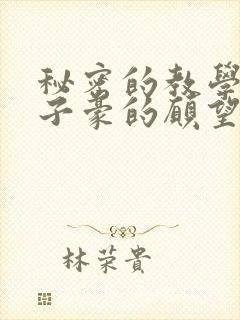 秘密的教學
子豪的願望
林荣貴